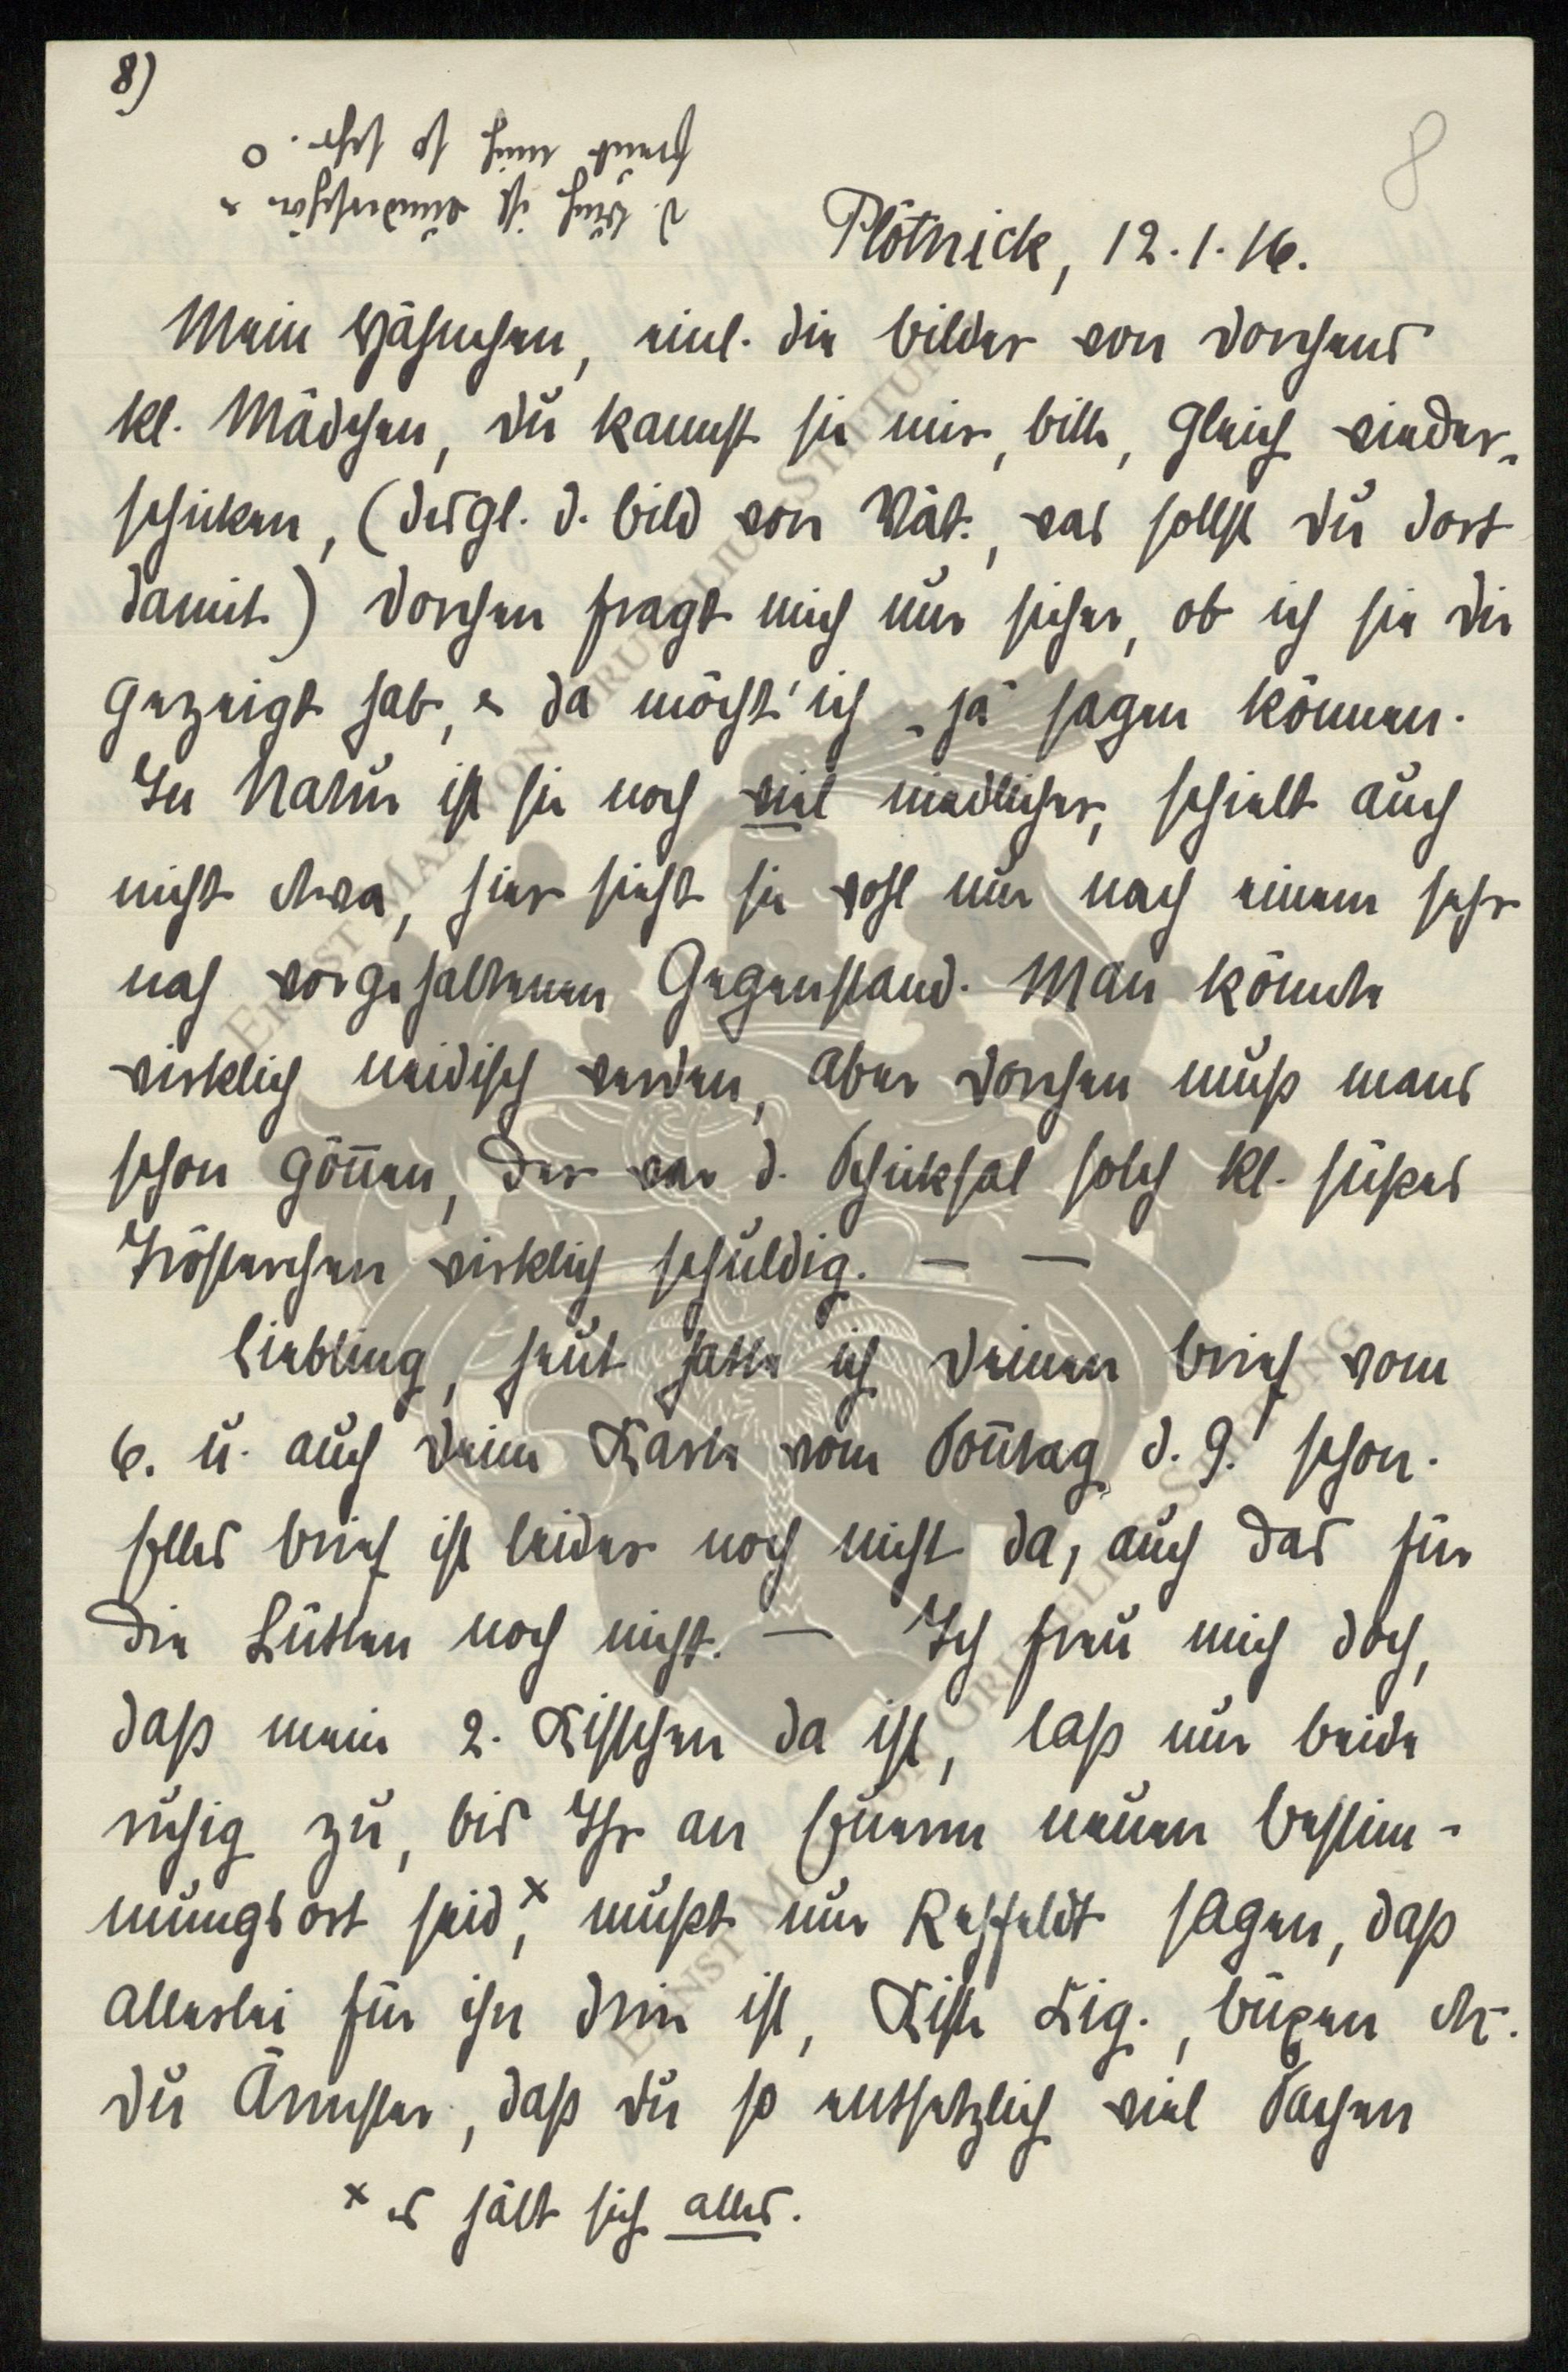 8)
8
d. Buch ist wunderschön &
freut mich so sehr. o
Plötnick, 12.1.16.
Mein Häschen, einl. die Bilder von Dorchens
kl. Mädchen, Du kannst sie mir, bitte, gleich wieder-
schicken, (desgl. d. Bild von Wät., was sollst Du dort
damit) Dorchen fragt mich nur sicher, ob ich sie Dir
gezeigt hab, & da möcht' ich „ja" sagen können.
In Natur ist sie noch viel niedlicher, schielt auch
nicht etwa, hier sieht sie wohl nur nach einem sehr
nah vorgehaltenen Gegenstand. Man könnte
wirklich neidisch werden, aber Dorchen muß mans
schon gönnen, der war d. Schicksal solch kl. süßes
Trösterchen wirklich schuldig. — —
Liebling, heut hatte ich Deinen Brief vom
6. u. auch Deine Karte vom Sonntag d. 9.! schon.
Elles Brief ist leider noch nicht da, auch das für
die Lütten noch nicht. — Ich freu mich doch,
daß mein 2. Kistchen da ist, laß nur beide
ruhig zu, bis Ihr an Euerm neuen Bestim-
mungsort seid,x mußt nur Rehfeldt sagen, daß
allerlei für ihn drin ist, Kiste Zig., Büxen etc.
Du Ärmster, daß Du so entsetzlich viel Sachen
x es hält sich alles.